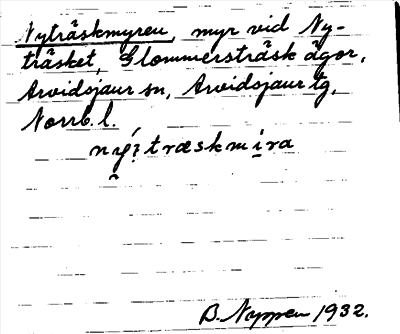 Nyträskmyren, myr vid Ny-
träsket, Glommersträsk ägor,
Arvidsjaur sn, Arvidsjaur tg,
Norrb. l.
nyí träskmira
B. Nappen 1932.